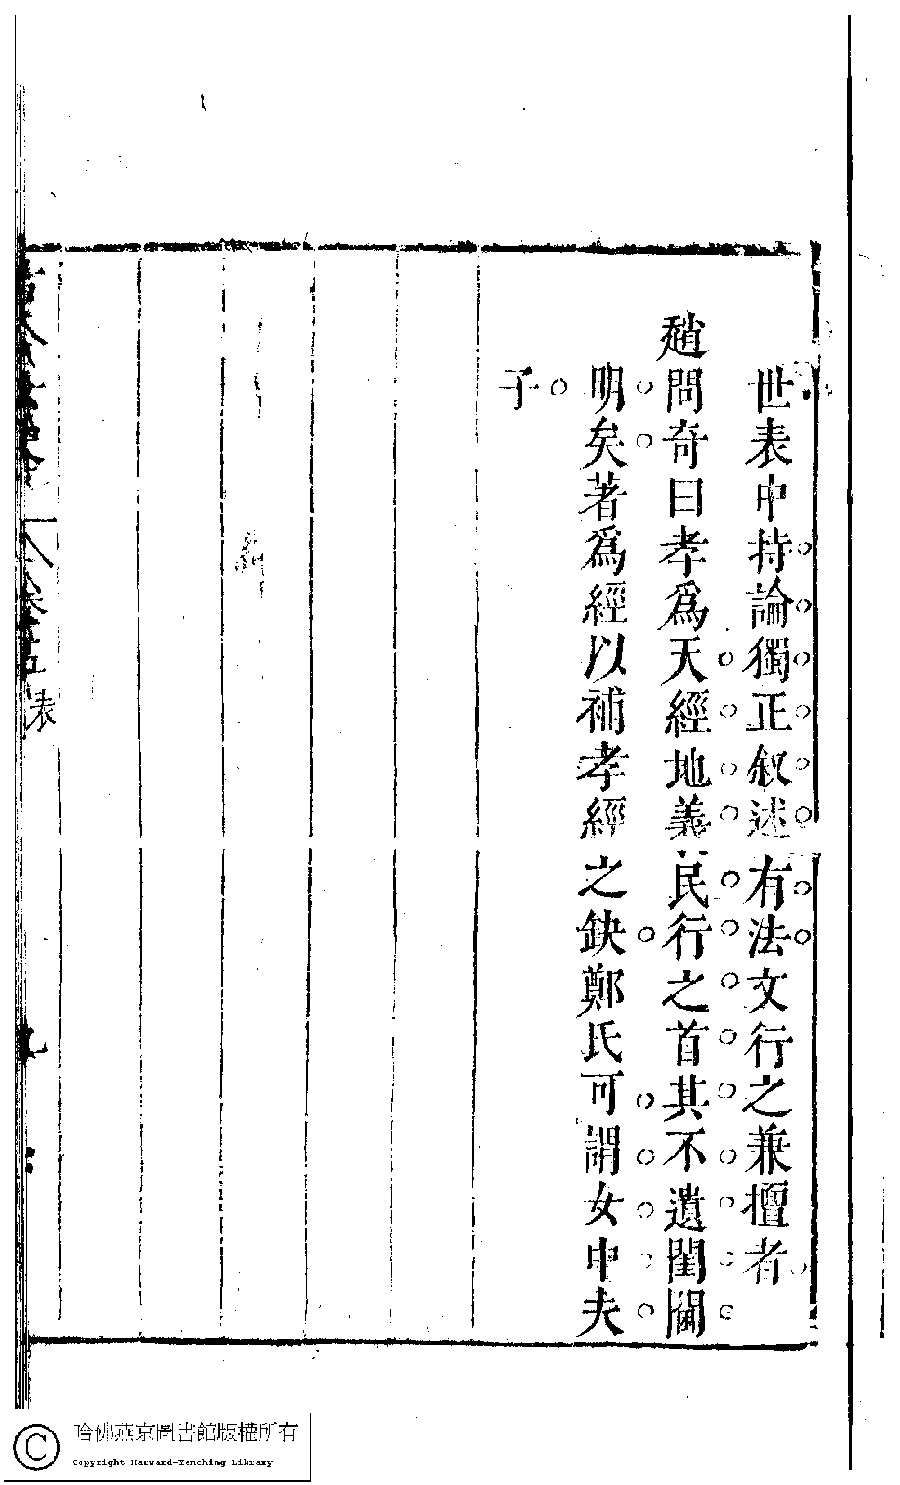 世表中持論獨正叙述有法文行之兼擅者
趙問奇曰孝爲天經地義民行之首其不遺閨閫
明矣著爲經以補孝經之缺鄭氏可謂女中夫
子
表
哈佛燕京圖書館版權所有
Copyright Harvard-Yenching Library